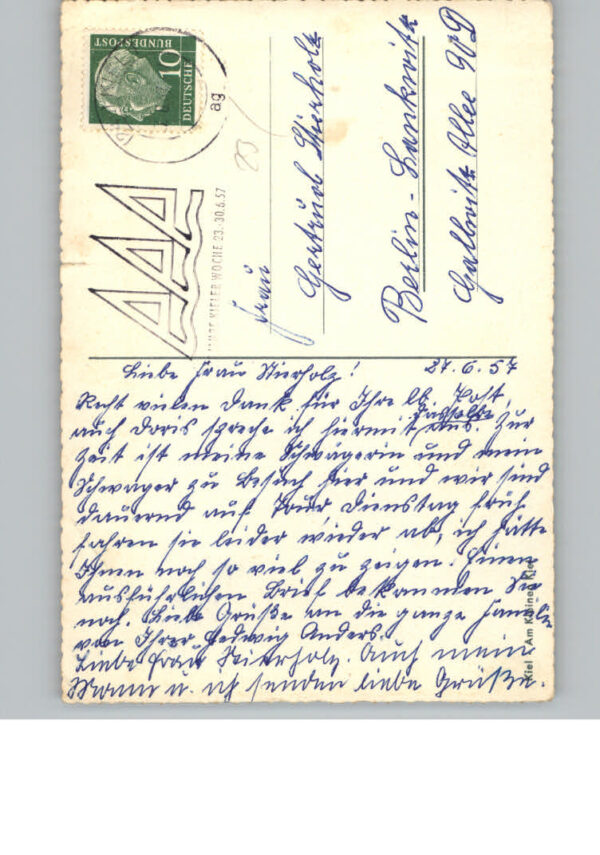 DEUTSCHE
BUNDESPOST
10
ag
KIELER WOCHE 23.-30.6.57
Frau
Gertrud Stierholz
Berlin-Lankwitz
Gallwitz Allee
Liebe Frau Stierholz! 27.6.57
Recht vielen Dank für Ihre lb. Post,
auch Doris spreche ich hiermit dasselbe aus. Zur
Zeit ist meine Schwägerin und mein
Schwager zu Besuch hier und wir sind
dauernd auf Tour, Dienstag früh
fahren sie leider wieder ab, ich hätte
Ihnen noch so viel zu zeigen. Einen
ausführlichen Brief bekommen Sie
noch. Liebe Grüße an die ganze Familie
von Ihrer Hedwig Anders.
Liebe Frau Stierholz. Auch mein
Mann u. ich senden liebe Grüße.
Kiel Am Kleinen Kiel